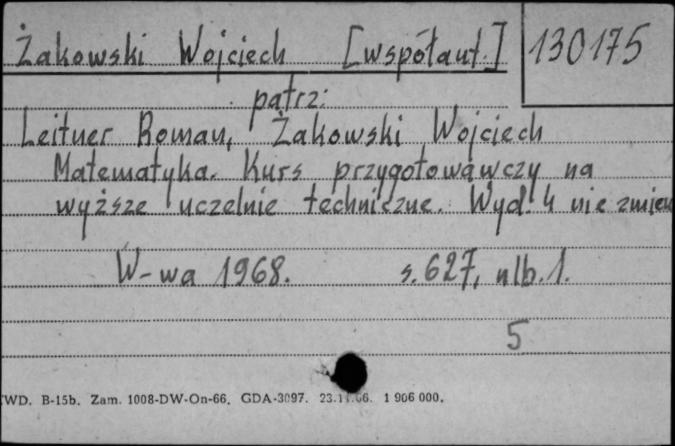 Żakowski Wojciech [współaut.] 130175
patrz:
Leitner Roman, Żakowski Wojciech
Matematyka. Kurs przygotowawczy na
wyższe uczelnie techniczne. Wyd. 4 nie zmien
W-wa 1968. s. 627, nlb. 1.
5
WD. B-15b. Zam. 1008-DW-On-66. GDA-3097. 1 906 000.